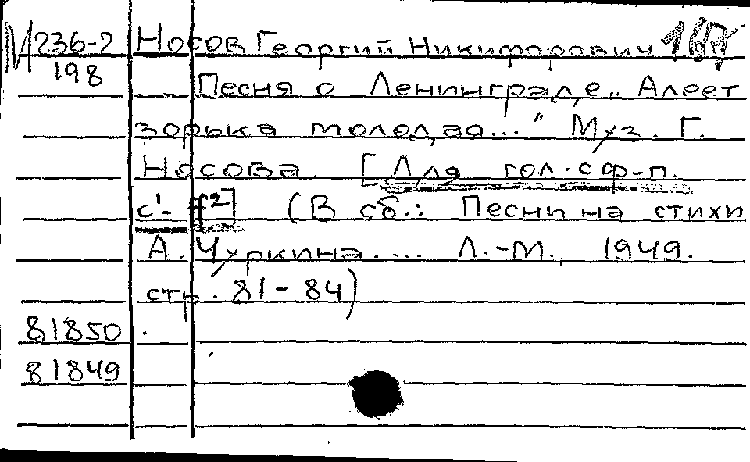 М236-2 Носов Георгий Никифорович
198 Песня о Ленинграде. „Алеет
зорька молодая..." Муз. Г.
Носова. [Для гол. с ф-п.
c¹- f²] (В сб.: Песни на стихи
А. Чуркина.... Л.-М., 1949.
стр. 81-84)
81850
81849